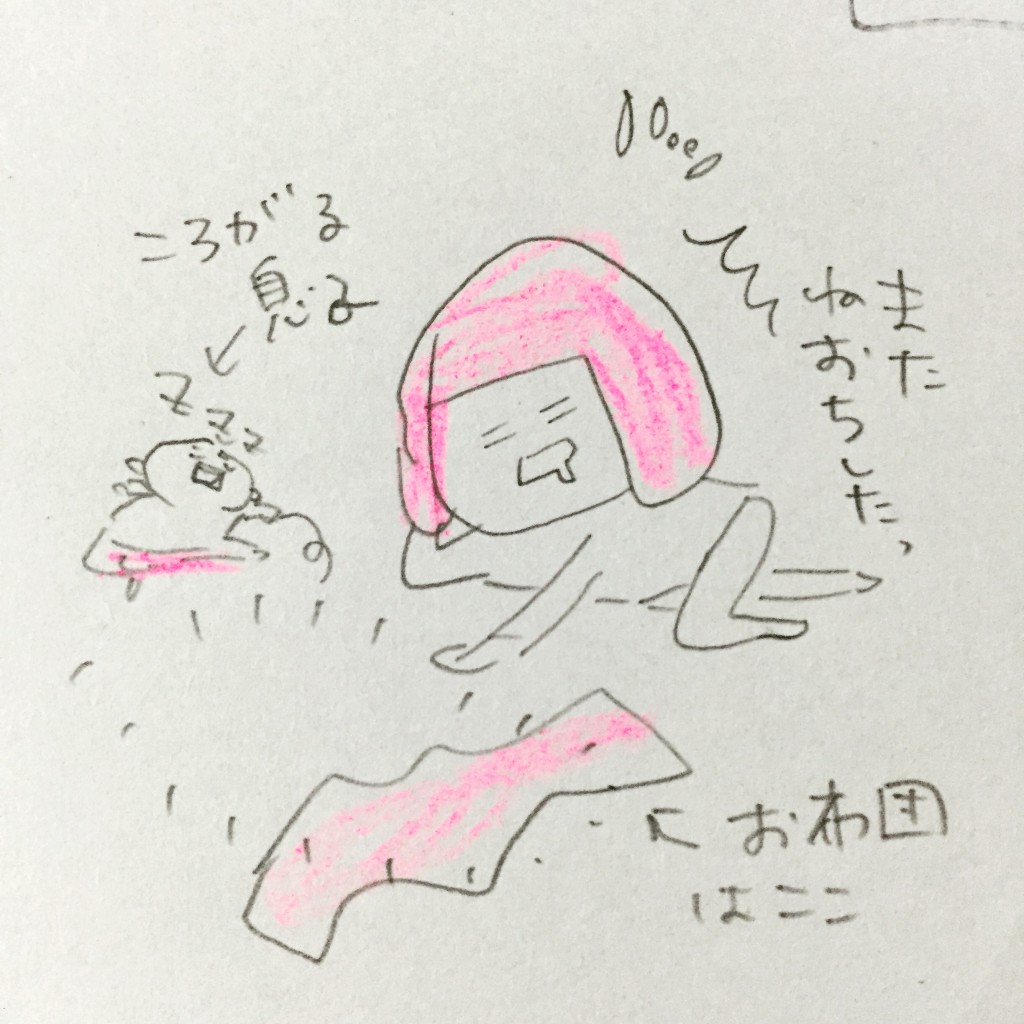 ころがる
息子
zzz
また
ねおちした、
お布団
はここ